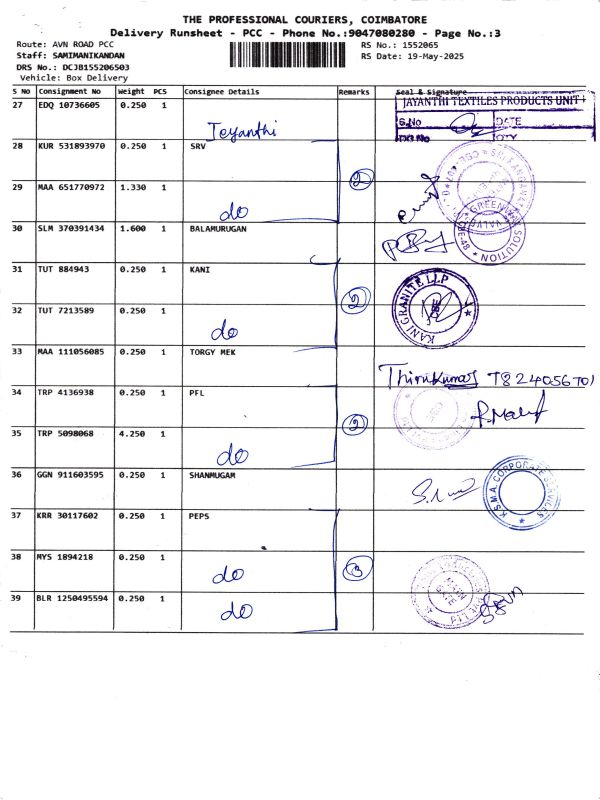 THE PROFESSIONAL COURIERS, COIMBATORE
Delivery Runsheet - PCC - Phone No.:9047080280 - Page No.:3
Route: AVN ROAD PCC
Staff: SAMIMANIKANDAN
DRS No.: DCJB155206503
Vehicle: Box Delivery
RS No.: 1552065
RS Date: 19-May-2025
S No Consignment No Weight PCS Consignee Details Remarks Seal & Signature
27 EDQ 10736605 0.250 1 Jeyanthi
JAYANTHI TEXTILES PRODUCTS UNIT-I
S.No DATE
DC No QTY
28 KUR 531893970 0.250 1 SRV
29 MAA 651770972 1.330 1 do
2
30 SLM 370391434 1.600 1 BALAMURUGAN
GREEN VALVE SOLUTION
31 TUT 884943 0.250 1 KANI
32 TUT 7213589 0.250 1 do
2
KANI GRANITE LLP
33 MAA 111056085 0.250 1 TORGY MEK
Thirukumar 7824056701
34 TRP 4136938 0.250 1 PFL
35 TRP 5098068 4.250 1 do
2
36 GGN 911603595 0.250 1 SHANMUGAM
K.S.M.A. CORPORATE SERVICES
37 KRR 30117602 0.250 1 PEPS
38 MYS 1894218 0.250 1 do
3
39 BLR 1250495594 0.250 1 do